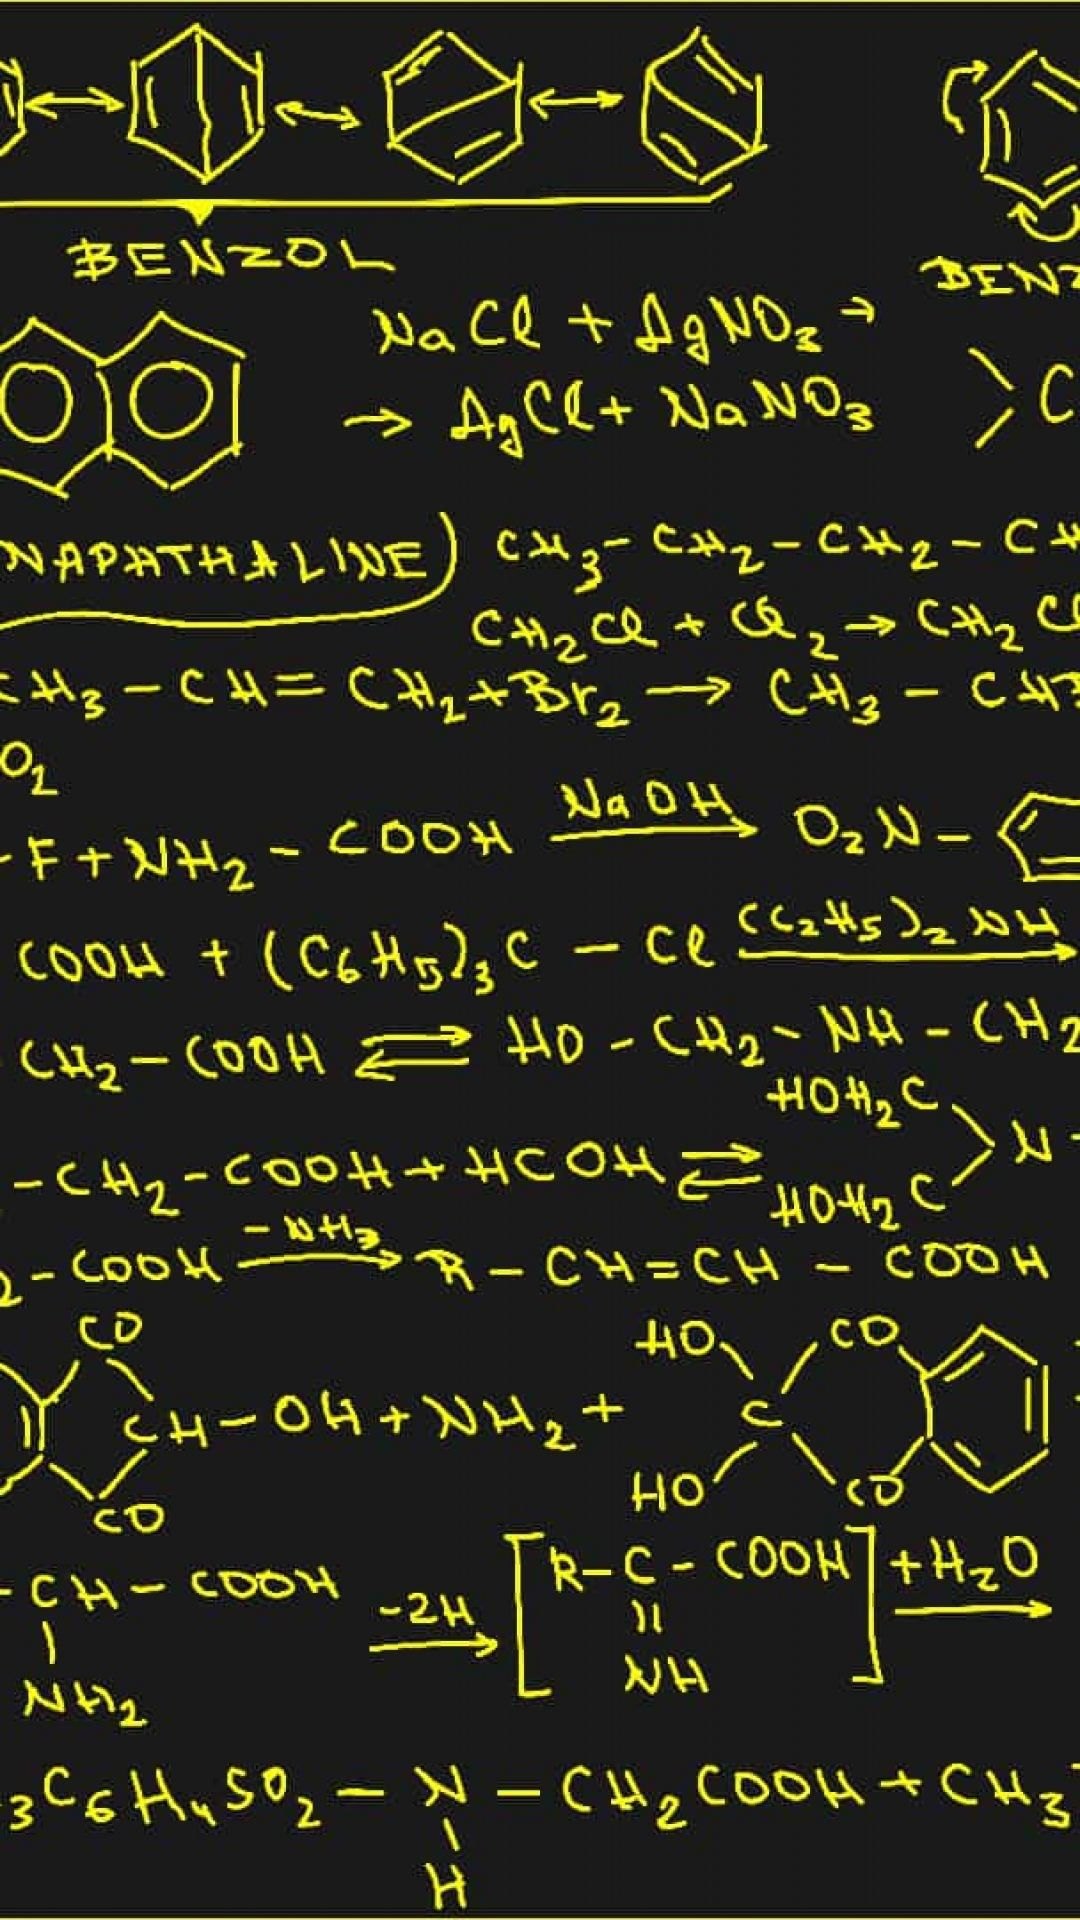 BENZOL
BENZ
NaCl + AgNO₃ →
→ AgCl + NaNO₃
C
NAPHTHALINE)
CH₃ - CH₂ - CH₂ - CH
CH₂Cl + Cl₂ → CH₂Cl
CH₃ - CH = CH₂ + Br₂ → CH₃ - CHB
O₂
- F + NH₂ - COOH NaOH → O₂N -
COOH + (C₆H₅)₃C - Cl (C₂H₅)₂NH →
CH₂ - COOH ⇌ HO - CH₂ - NH - CH₂
HOH₂C
N -
- CH₂ - COOH + HCOH ⇌
HOH₂C
₂ - COOH -NH₃ → R - CH = CH - COOH
CO
HO CO
CH - OH + NH₂ + C
HO CO
CO
- CH - COOH -2H → [R - C - COOH] +H₂O →
||
NH
NH₂
₃C₆H₄SO₂ - N - CH₂COOH + CH₃
H